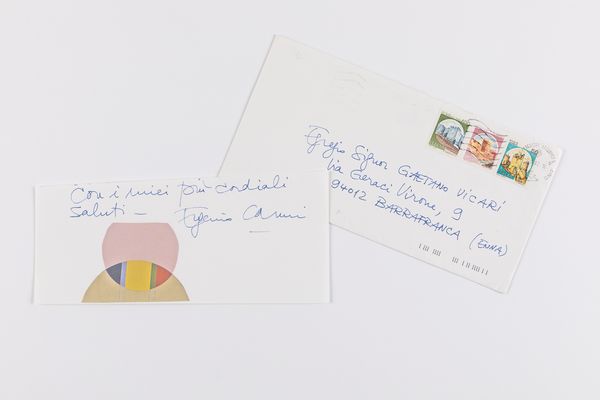 Con i miei più cordiali
saluti — Eugenio Carmi
Egregio Signor GAETANO VICARI
Via Geraci Virone, 9
94012 BARRAFRANCA (ENNA)